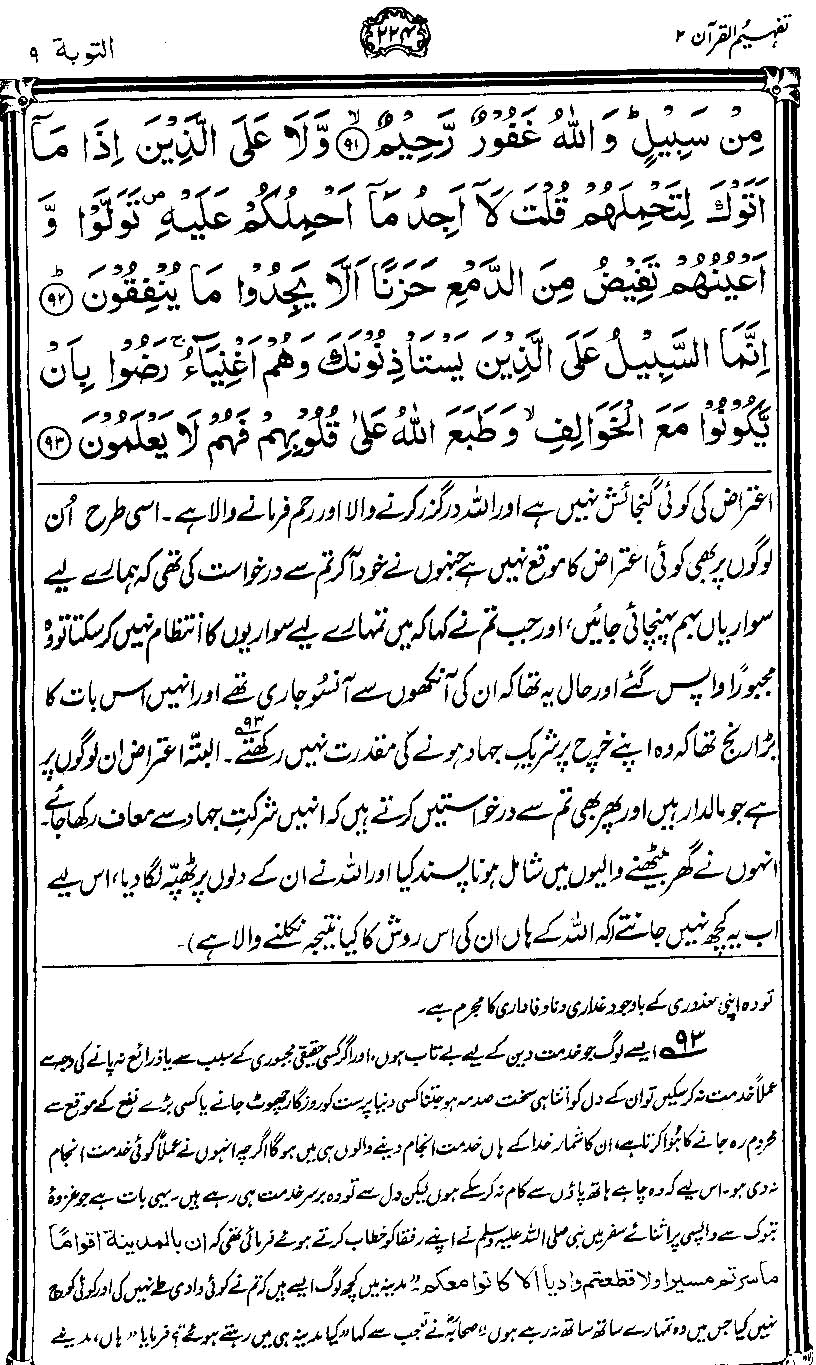 تفہیم القرآن ۲
۲۲۴
التوبة ۹
مِنۡ سَبِيۡلٍؕ وَاللّٰهُ غَفُوۡرٌ رَّحِيۡمٌۙ ﴿۹۱﴾ وَّلَا عَلَى الَّذِيۡنَ اِذَا مَاۤ
اَتَوۡكَ لِتَحۡمِلَهُمۡ قُلۡتَ لَاۤ اَجِدُ مَاۤ اَحۡمِلُكُمۡ عَلَيۡهِ ص تَوَلَّوۡا وَّ
اَعۡيُنُهُمۡ تَفِيۡضُ مِنَ الدَّمۡعِ حَزَنًا اَلَّا يَجِدُوۡا مَا يُنۡفِقُوۡنَؕ ﴿۹۲﴾
اِنَّمَا السَّبِيۡلُ عَلَى الَّذِيۡنَ يَسۡتَاۡذِنُوۡنَكَ وَهُمۡ اَغۡنِيَآءُۚ رَضُوۡا بِاَنۡ
يَّكُوۡنُوۡا مَعَ الۡخَوَالِفِۙ وَطَبَعَ اللّٰهُ عَلٰى قُلُوۡبِهِمۡ فَهُمۡ لَا يَعۡلَمُوۡنَ ﴿۹۳﴾
اعتراض کی کوئی گنجائش نہیں ہے اور اللہ درگزر کرنے والا اور رحم فرمانے والا ہے۔ اسی طرح اُن
لوگوں پر بھی کوئی اعتراض کا موقع نہیں ہے جنہوں نے خود آ کر تم سے درخواست کی تھی کہ ہمارے لیے
سواریاں بہم پہنچائی جائیں، اور جب تم نے کہا کہ میں تمہارے لیے سواریوں کا انتظام نہیں کر سکتا تو وہ
مجبوراً واپس گئے اور حال یہ تھا کہ ان کی آنکھوں سے آنسو جاری تھے اور انہیں اس بات کا
بڑا رنج تھا کہ وہ اپنے خرچ پر شریکِ جہاد ہونے کی مقدرت نہیں رکھتے۹۳۔ البتہ اعتراض ان لوگوں پر
ہے جو مالدار ہیں اور پھر بھی تم سے درخواستیں کرتے ہیں کہ انہیں شرکتِ جہاد سے معاف رکھا جائے۔
انہوں نے گھر بیٹھنے والیوں میں شامل ہونا پسند کیا اور اللہ نے ان کے دلوں پر ٹھپّہ لگا دیا، اس لیے
اب یہ کچھ نہیں جانتے (کہ اللہ کے ہاں ان کی اس روش کا کیا نتیجہ نکلنے والا ہے)۔
تو وہ اپنی معذوری کے باوجود غداری و ناوفاداری کا مجرم ہے۔
۹۳ ایسے لوگ جو خدمت دین کے لیے بے تاب ہوں، اور اگر کسی حقیقی مجبوری کے سبب سے یا ذرائع نہ پانے کی وجہ سے
عملاً خدمت نہ کر سکیں تو ان کے دل کو اتنا ہی سخت صدمہ ہو جتنا کسی دنیا پرست کو روزگار چھوٹ جانے یا کسی بڑے نفع کے موقع سے
محروم رہ جانے کا ہُوا کرتا ہے، ان کا شمار خدا کے ہاں خدمت انجام دینے والوں ہی میں ہوگا اگرچہ انہوں نے عملاً کوئی خدمت انجام
نہ دی ہو۔ اس لیے کہ وہ چاہے ہاتھ پاؤں سے کام نہ کر سکے ہوں لیکن دل سے تو وہ برسرِ خدمت ہی رہے ہیں۔ یہی بات ہے جو غزوۂ
تبوک سے واپسی پر اثنائے سفر میں نبی صلی اللہ علیہ وسلم نے اپنے رفقا کو خطاب کرتے ہوئے فرمائی تھی کہ ان بالمدینة اقواما
ما سرتم مسیرا ولا قطعتم وادیا الا کانوا معکم۔ ”مدینہ میں کچھ لوگ ایسے ہیں کہ تم نے کوئی وادی طے نہیں کی اور کوئی کوچ
نہیں کیا جس میں وہ تمہارے ساتھ ساتھ نہ رہے ہوں“ صحابہؓ نے تعجب سے کہا ”کیا مدینہ ہی میں رہتے ہوئے“؟ فرمایا ”ہاں، مدینے